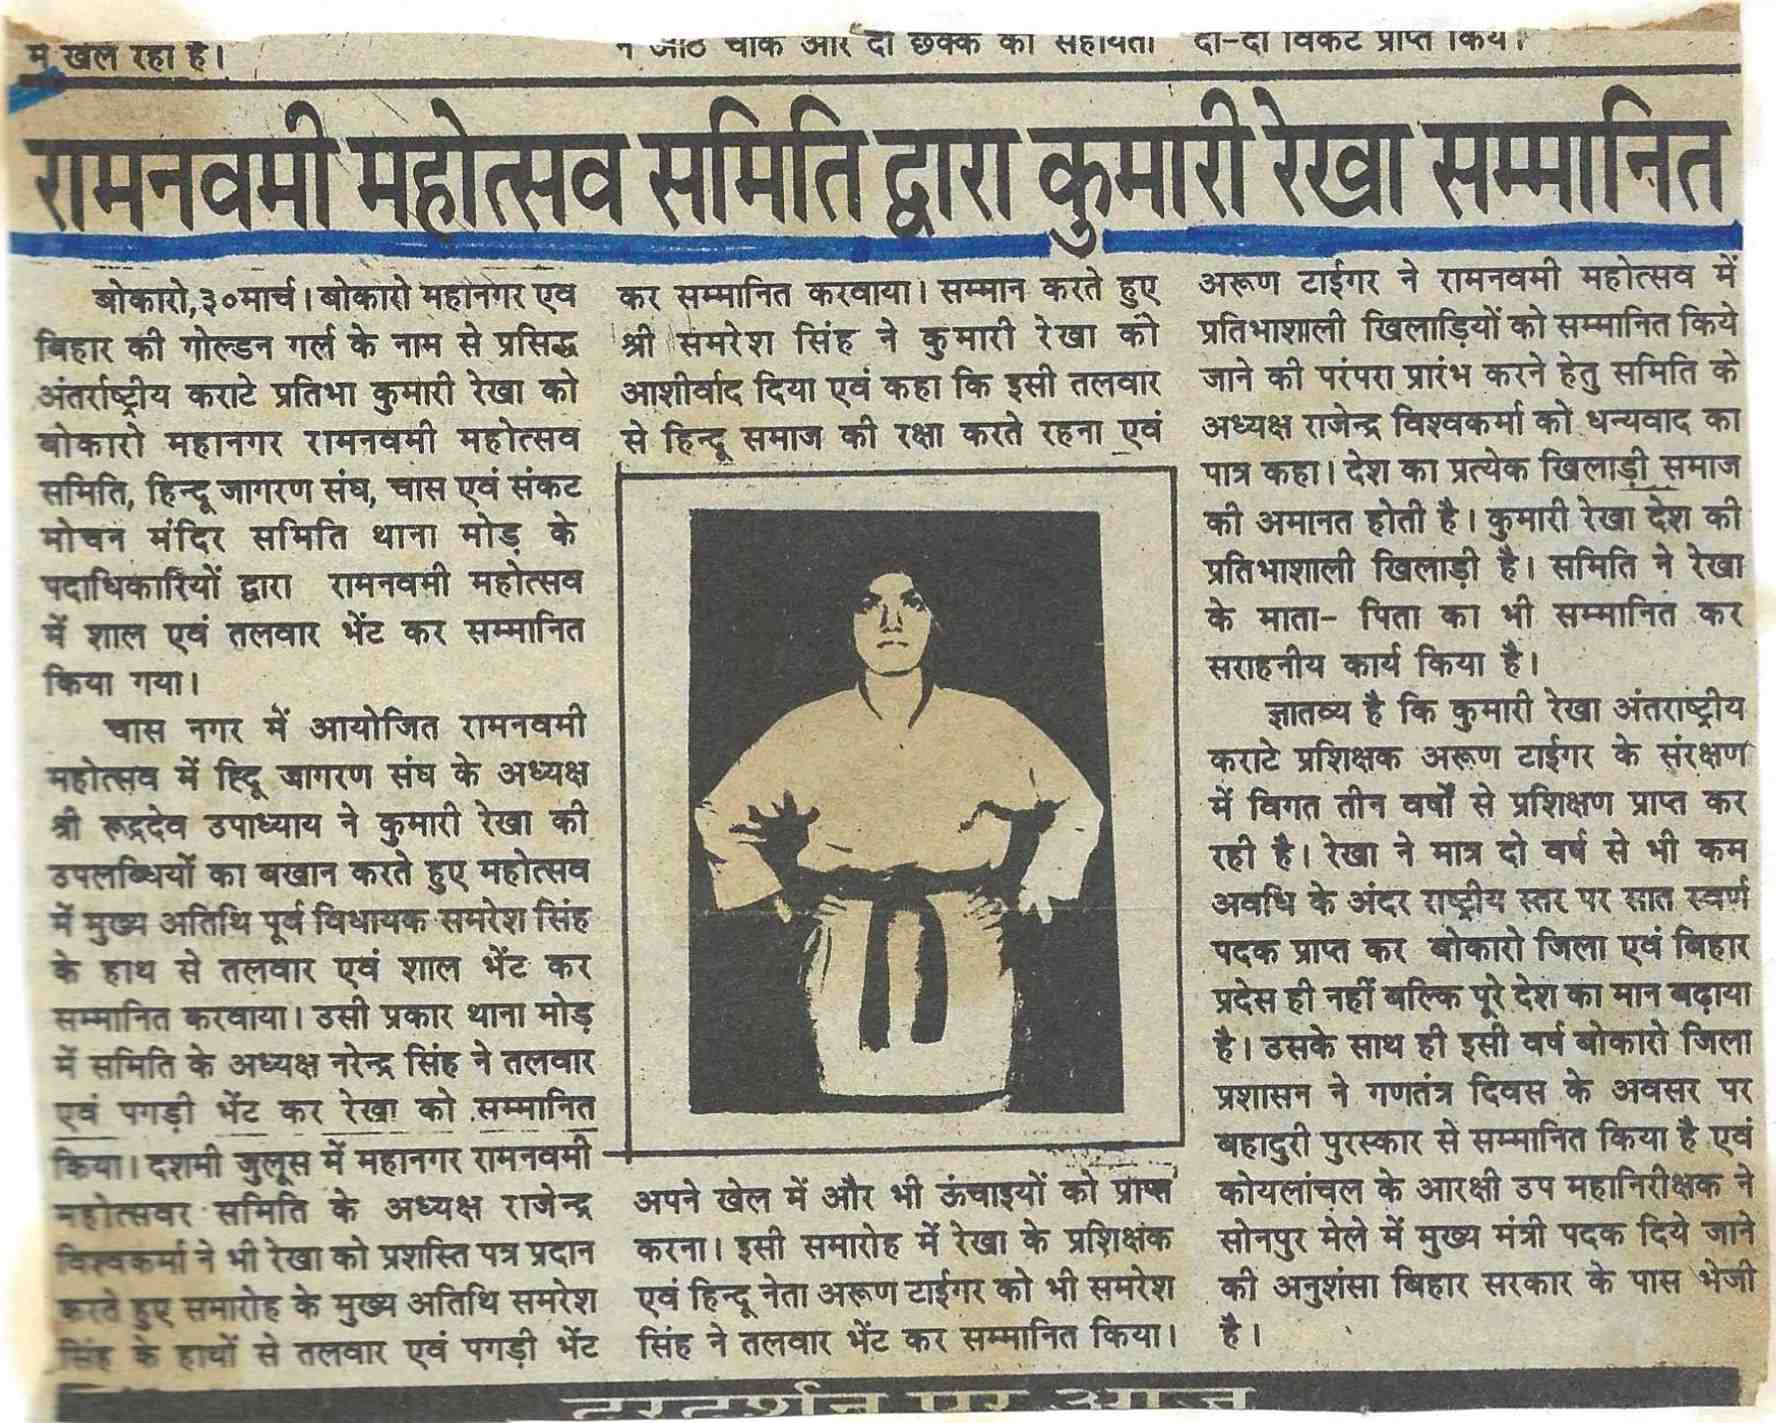 में खेल रहा है।
ने आठ चौके और दो छक्के की सहायता
दो-दो विकेट प्राप्त किये।
रामनवमी महोत्सव समिति द्वारा कुमारी रेखा सम्मानित
बोकारो,३०मार्च। बोकारो महानगर एवं
बिहार की गोल्डन गर्ल के नाम से प्रसिद्ध
अंतर्राष्ट्रीय कराटे प्रतिभा कुमारी रेखा को
बोकारो महानगर रामनवमी महोत्सव
समिति, हिन्दू जागरण संघ, चास एवं संकट
मोचन मंदिर समिति थाना मोड़ के
पदाधिकारियों द्वारा रामनवमी महोत्सव
में शाल एवं तलवार भेंट कर सम्मानित
किया गया।
चास नगर में आयोजित रामनवमी
महोत्सव में हिंदू जागरण संघ के अध्यक्ष
श्री रूद्रदेव उपाध्याय ने कुमारी रेखा की
उपलब्धियों का बखान करते हुए महोत्सव
में मुख्य अतिथि पूर्व विधायक समरेश सिंह
के हाथ से तलवार एवं शाल भेंट कर
सम्मानित करवाया। उसी प्रकार थाना मोड़
में समिति के अध्यक्ष नरेन्द्र सिंह ने तलवार
एवं पगड़ी भेंट कर रेखा को सम्मानित
किया। दशमी जुलूस में महानगर रामनवमी
महोत्सवर समिति के अध्यक्ष राजेन्द्र
विश्वकर्मा ने भी रेखा को प्रशस्ति पत्र प्रदान
करते हुए समारोह के मुख्य अतिथि समरेश
सिंह के हाथों से तलवार एवं पगड़ी भेंट
कर सम्मानित करवाया। सम्मान करते हुए
श्री समरेश सिंह ने कुमारी रेखा को
आशीर्वाद दिया एवं कहा कि इसी तलवार
से हिन्दू समाज की रक्षा करते रहना एवं
अपने खेल में और भी ऊंचाइयों को प्राप्त
करना। इसी समारोह में रेखा के प्रशिक्षक
एवं हिन्दू नेता अरूण टाईगर को भी समरेश
सिंह ने तलवार भेंट कर सम्मानित किया।
अरूण टाईगर ने रामनवमी महोत्सव में
प्रतिभाशाली खिलाड़ियों को सम्मानित किये
जाने की परंपरा प्रारंभ करने हेतु समिति के
अध्यक्ष राजेन्द्र विश्वकर्मा को धन्यवाद का
पात्र कहा। देश का प्रत्येक खिलाड़ी समाज
की अमानत होती है। कुमारी रेखा देश की
प्रतिभाशाली खिलाड़ी है। समिति ने रेखा
के माता- पिता का भी सम्मानित कर
सराहनीय कार्य किया है।
ज्ञातव्य है कि कुमारी रेखा अंतराष्ट्रीय
कराटे प्रशिक्षक अरूण टाईगर के संरक्षण
में विगत तीन वर्षों से प्रशिक्षण प्राप्त कर
रही है। रेखा ने मात्र दो वर्ष से भी कम
अवधि के अंदर राष्ट्रीय स्तर पर सात स्वर्ण
पदक प्राप्त कर बोकारो जिला एवं बिहार
प्रदेस ही नहीं बल्कि पूरे देश का मान बढ़ाया
है। उसके साथ ही इसी वर्ष बोकारो जिला
प्रशासन ने गणतंत्र दिवस के अवसर पर
बहादुरी पुरस्कार से सम्मानित किया है एवं
कोयलांचल के आरक्षी उप महानिरीक्षक ने
सोनपुर मेले में मुख्य मंत्री पदक दिये जाने
की अनुशंसा बिहार सरकार के पास भेजी
है।
दूरदर्शन पर आज